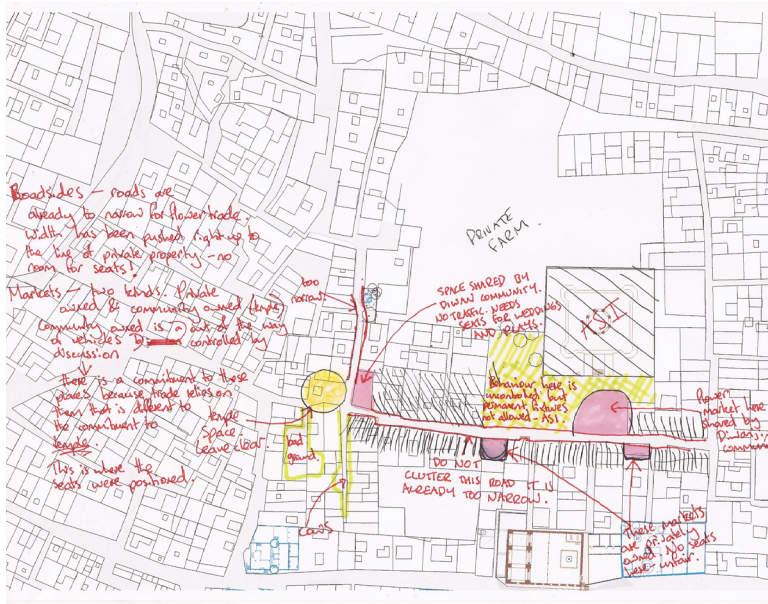 Roadsides – roads are
already to narrow for flower trade.
width has been pushed right up to
the line of private property – no
room for seats!
Markets – two kinds. Private
owned & community owned (temple)
Community owned is a) out of the way
of vehicles b) controlled by
discussion
there is a commitment to these
places because trade relies on
them that is different to
the commitment to
temples.
This is where the
seats were positioned.
too
narrow.
PRIVATE
FARM.
SPACE SHARED BY
DIWAN COMMUNITY.
NO TRAFFIC. NEEDS
SEATS FOR WEDDINGS
AND PLAYS.
ASI
Behaviour here is
uncontrolled but
permanent fixtures
not allowed – ASI.
Flower
market here
shared by
Diwan
commun
temple
space.
leave clear.
bad
ground.
cows
DO NOT
CLUTTER THIS ROAD IT IS
ALREADY TOO NARROW.
These markets
are privately
owned. No seats
here – unfair.